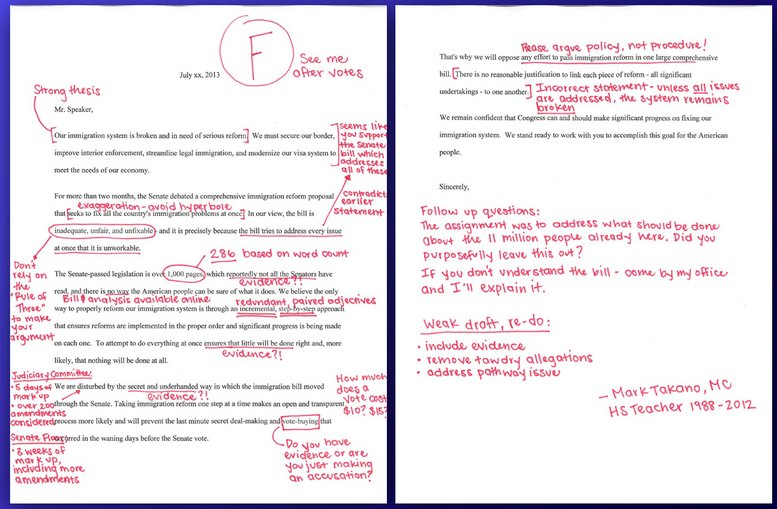 F
See me
after votes
July xx, 2013
Strong thesis
Mr. Speaker,
Our immigration system is broken and in need of serious reform. We must secure our border,
improve interior enforcement, streamline legal immigration, and modernize our visa system to
meet the needs of our economy.
seems like
you support
the Senate
bill which
addresses
all of these
For more than two months, the Senate debated a comprehensive immigration reform proposal
exaggeration - avoid hyperbole
that seeks to fix all the country's immigration problems at once. In our view, the bill is
inadequate, unfair, and unfixable - and it is precisely because the bill tries to address every issue
at once that it is unworkable.
contradicts
earlier
statement
Don't
rely on
the
"Rule of
Three"
to make
your
argument
286 based on word count
The Senate-passed legislation is over 1,000 pages, which reportedly not all the Senators have
evidence?!
read, and there is no way the American people can be sure of what it does. We believe the only
Bill & analysis available online
redundant, paired adjectives
way to properly reform our immigration system is through an incremental, step-by-step approach
that ensures reforms are implemented in the proper order and significant progress is being made
on each one. To attempt to do everything at once ensures that little will be done right and, more
evidence?!
likely, that nothing will be done at all.
Judiciary Committee:
• 5 days of
mark up
• over 200
amendments
considered
Senate Floor:
• 3 weeks of
mark up,
including more
amendments
We are disturbed by the secret and underhanded way in which the immigration bill moved
evidence?!
through the Senate. Taking immigration reform one step at a time makes an open and transparent
process more likely and will prevent the last minute secret deal-making and vote-buying that
occurred in the waning days before the Senate vote.
How much
does a
vote cost
$10? $15?
Do you have
evidence or are
you just making
an accusation?
Please argue policy, not procedure!
That's why we will oppose any effort to pass immigration reform in one large comprehensive
bill. There is no reasonable justification to link each piece of reform - all significant
undertakings - to one another.
Incorrect statement - unless all issues
are addressed, the system remains
broken
We remain confident that Congress can and should make significant progress on fixing our
immigration system. We stand ready to work with you to accomplish this goal for the American
people.
Sincerely,
Follow up questions:
The assignment was to address what should be done
about the 11 million people already here. Did you
purposefully leave this out?
If you don't understand the bill - come by my office
and I'll explain it.
Weak draft, re-do:
• include evidence
• remove tawdry allegations
• address pathway issue
- Mark Takano, MC
HS Teacher 1988-2012